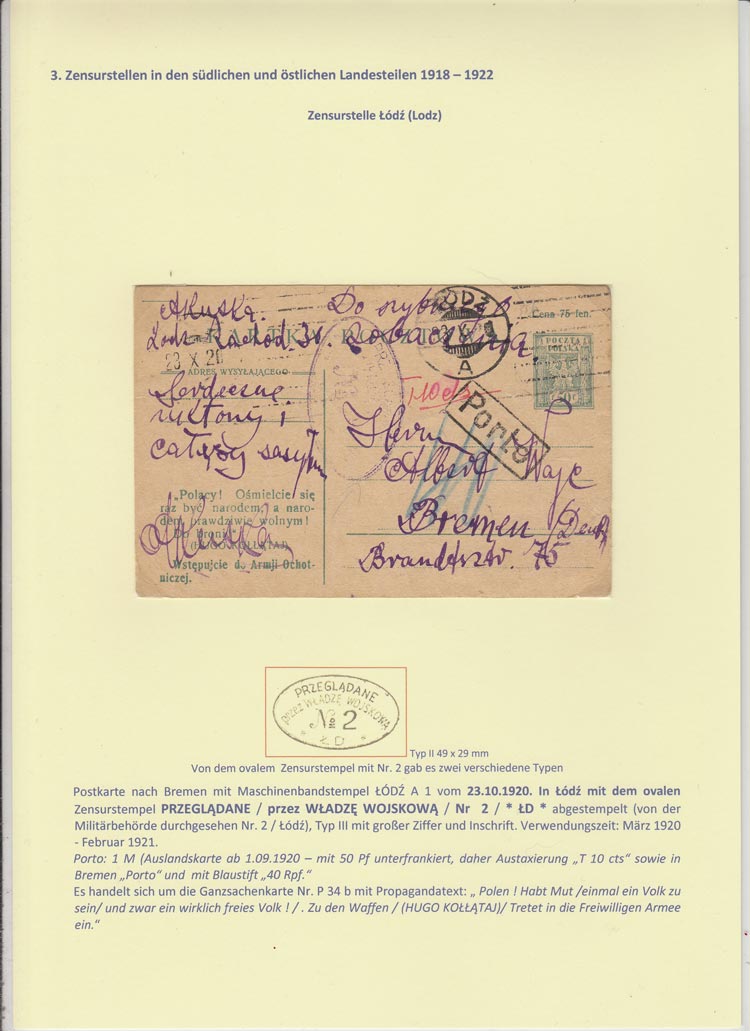 3. Zensurstellen in den südlichen und östlichen Landesteilen 1918 – 1922
Zensurstelle Łódź (Lodz)
Akuska.
23 X 20
ADRES WYSYŁAJĄCEGO
Serdeczne
ukłony i
całuję
„Polacy! Ośmielcie się
raz być narodem, a naro-
dem prawdziwie wolnym!
Do broni!"
(HUGO KOŁŁĄTAJ)
Wstępujcie do Armji Ochot-
niczej.
KARTKA
Do
ŁÓDŹ
A
Cena 75 fen.
POCZTA
POLSKA
T 10 cts
Porto
Herrn
Albert
Bremen
75
PRZEGLĄDANE
przez WŁADZĘ WOJSKOWĄ
No 2
* ŁD *
Typ II 49 x 29 mm
Von dem ovalem Zensurstempel mit Nr. 2 gab es zwei verschiedene Typen
Postkarte nach Bremen mit Maschinenbandstempel ŁÓDŹ A 1 vom 23.10.1920. In Łódź mit dem ovalen
Zensurstempel PRZEGLĄDANE / przez WŁADZĘ WOJSKOWĄ / Nr 2 / * ŁD * abgestempelt (von der
Militärbehörde durchgesehen Nr. 2 / Łódź), Typ III mit großer Ziffer und Inschrift. Verwendungszeit: März 1920
- Februar 1921.
Porto: 1 M (Auslandskarte ab 1.09.1920 – mit 50 Pf unterfrankiert, daher Austaxierung „T 10 cts“ sowie in
Bremen „Porto“ und mit Blaustift „40 Rpf.“
Es handelt sich um die Ganzsachenkarte Nr. P 34 b mit Propagandatext: „ Polen ! Habt Mut /einmal ein Volk zu
sein/ und zwar ein wirklich freies Volk ! / . Zu den Waffen / (HUGO KOŁŁĄTAJ)/ Tretet in die Freiwilligen Armee
ein.“